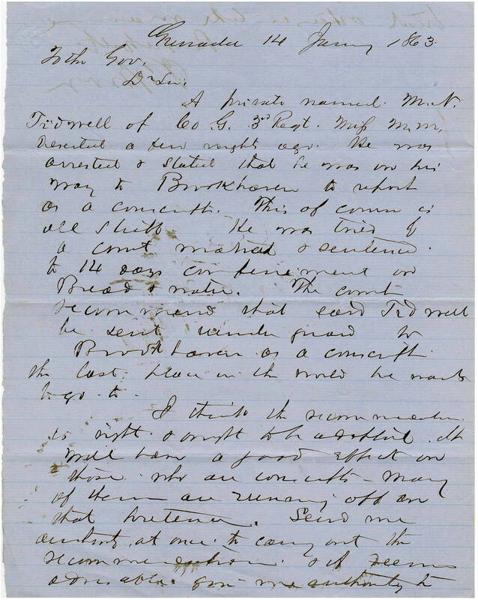 Grenada 14 Jany 1863
To the Gov.
Dr Sir.
A private named M. N.
Tidwell of Co G. 3d Regt. Miss M.m,
deserted a few nights ago. He was
arrested & stated that he was on his
way to Brookhaven to report
as a conscript. This of course is
all stuff. He was tried by
a court martial & sentenced
to 14 days confinement on
Bread & water. The court
recommend that said Tidwell
be sent under guard to
Brookhaven as a conscript
the last place in the world he wants
to go to.
I think the recommendation
is right & ought to be adopted. It
will have a good effect on
those who are conscripts - many
of them are running off on
that pretence. Send me
authority at once to carry out the
recommendation & if deems
advisable give me authority to